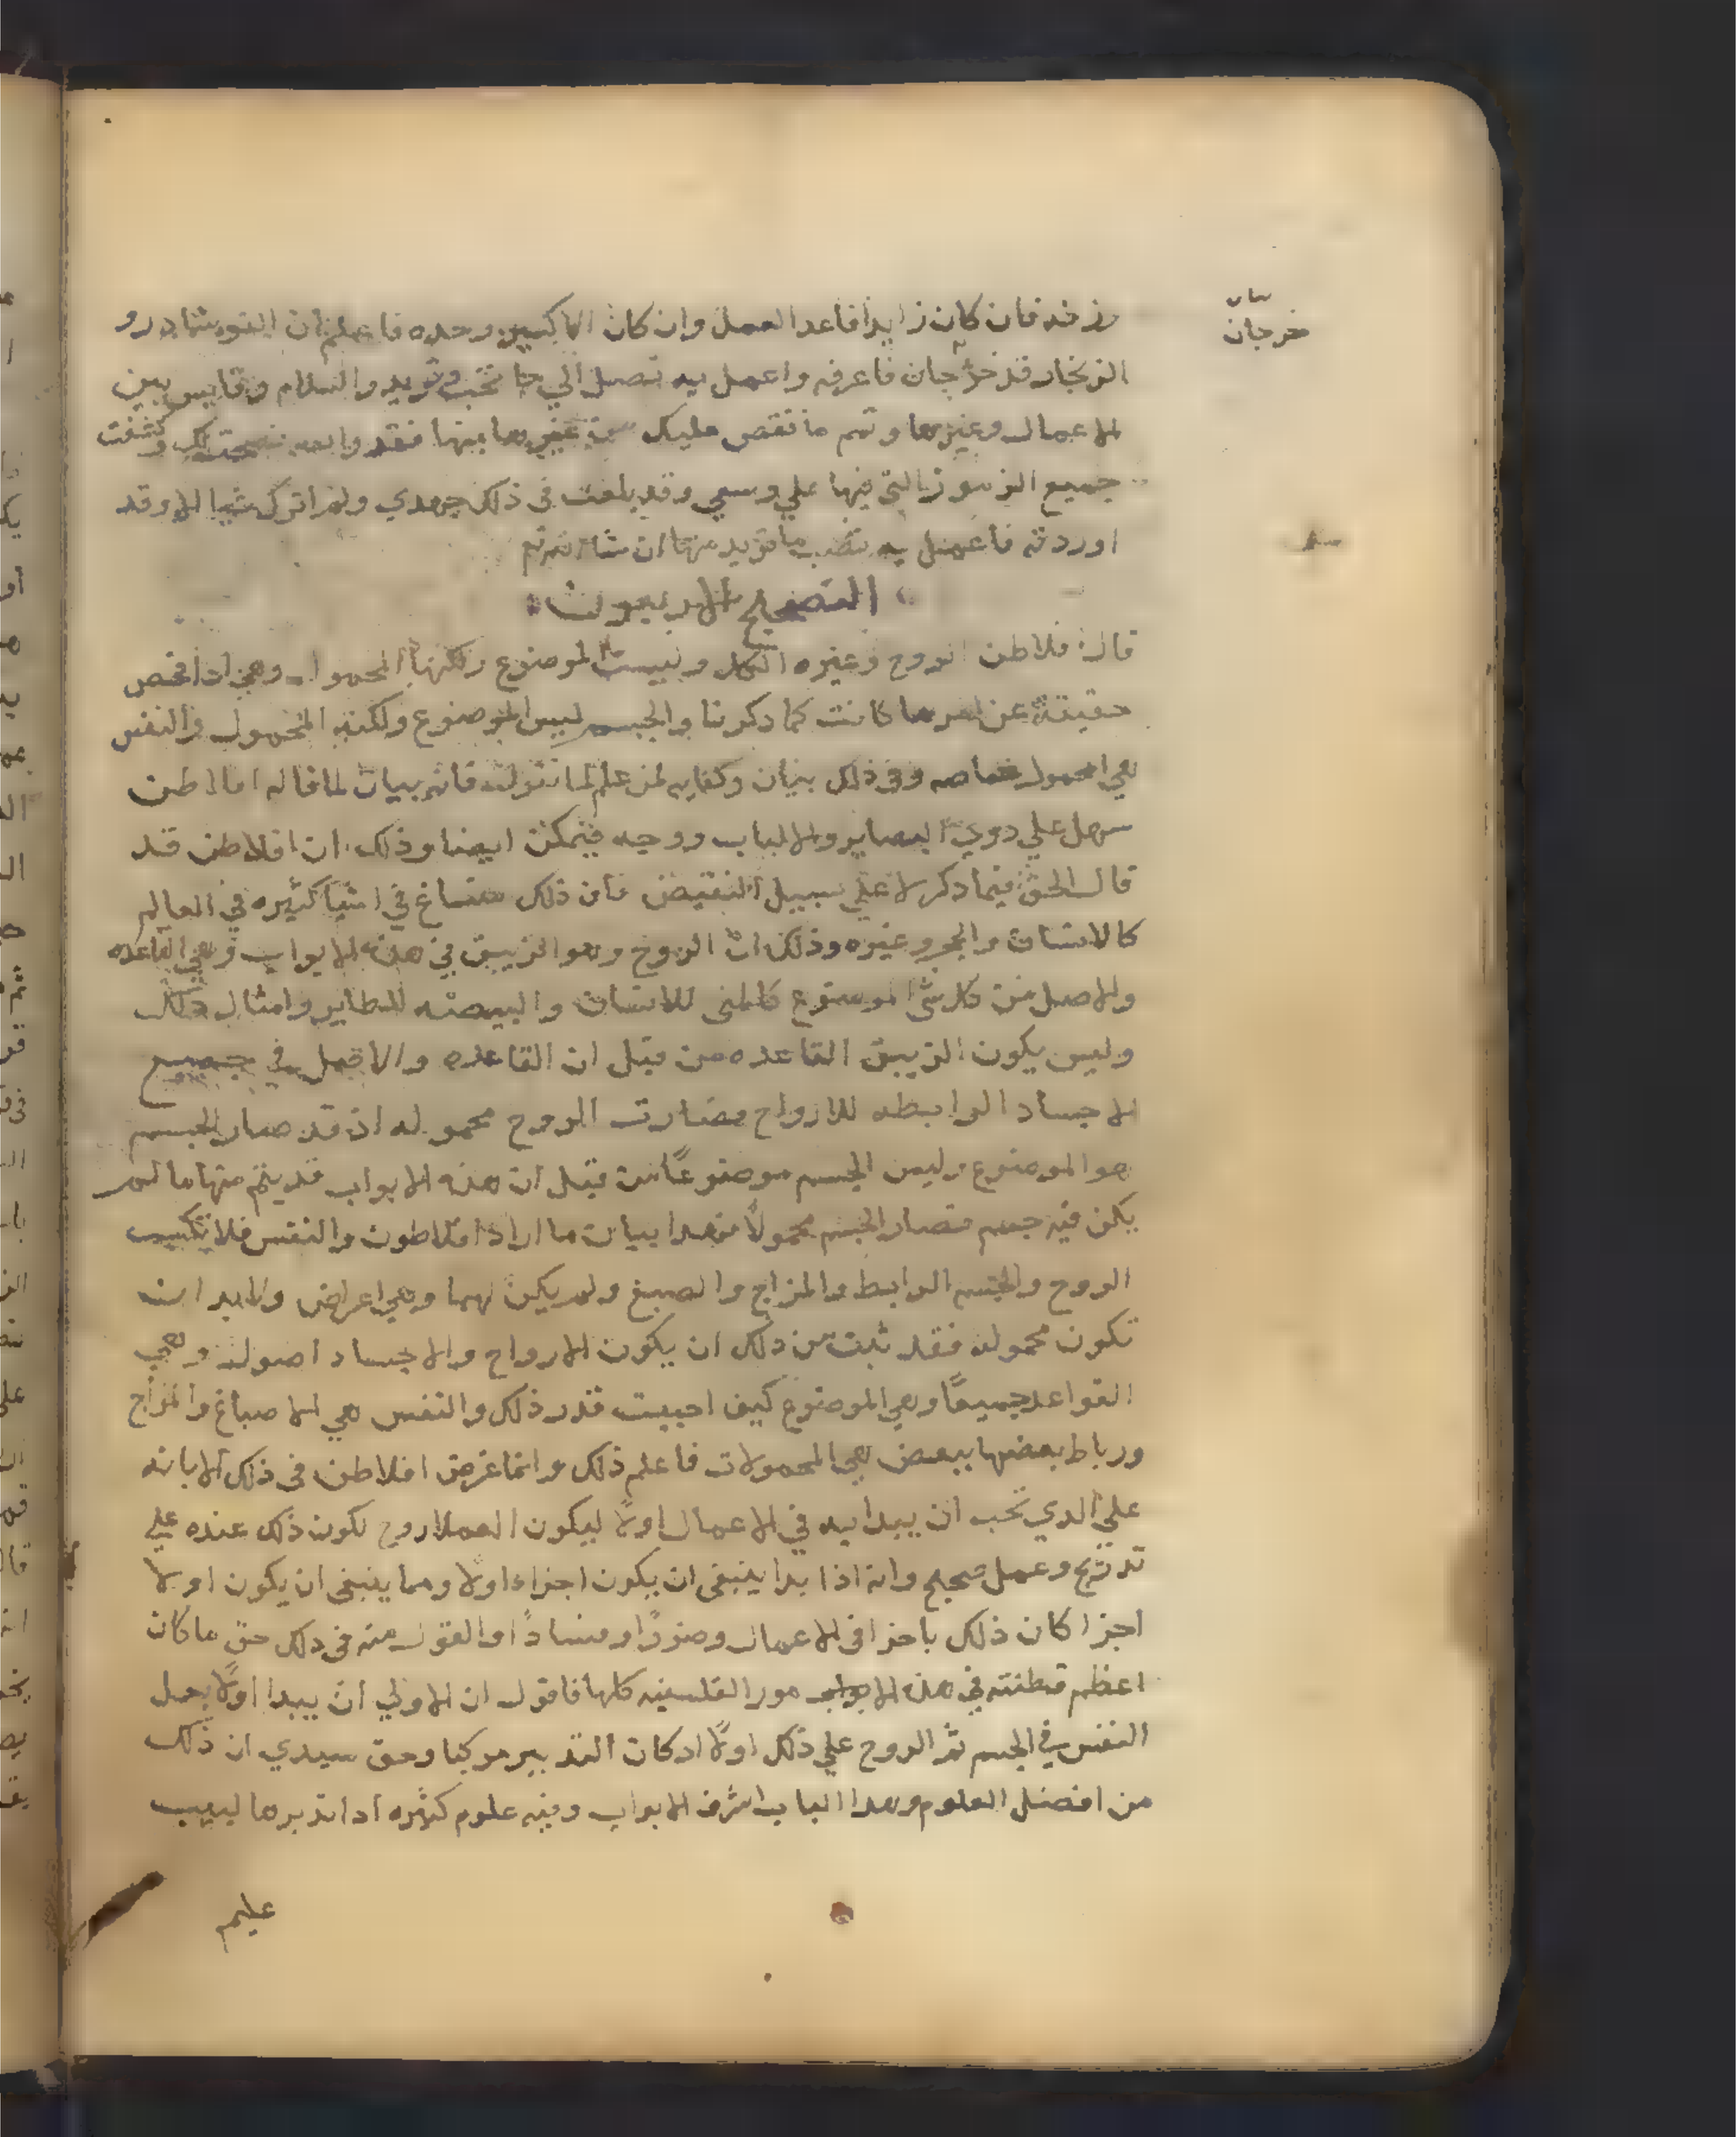 فان كان زايدا فاعد العمل وان كان الاكسير وحده فاعلم ان النوشادر و
الزنجار قد خرجان فاعرفه واعمل به تصل الي ما تحب وتريد والسلام وقايس بين
الاعمال وغيرها وتمم ما نقص عليك من غيرها منها فقد والله نصحتك وكشفت
جميع الرموز التي فيها علي وسعي وقد بلغت في ذلك جهدي ولم اترك شيا الا وقد
اوردته فاعمل به تصب ما تريد منها ان شا الله تع
التصحيح الاربعون
قال فلاطن الروح وغيره الكل وليست الموضوع ولكنها المحمول وهي اذا فحص
حقيقة عن امرها كانت كما ذكرنا والجسم ليس الموضوع ولكنه المحمول والنفس
هي المحمول خاصه وفي ذلك بيان وكفايه لمن علم لما نقول فانه بيان لما قاله افلاطن
سهل علي دوي البصاير والالباب ووجيه فيمكن ايضا وذلك ان افلاطن قد
قال الحق فيما دكر لا علي سبيل النقيض فان ذلك منساغ في اشيا كثيره في العالم
كالانسان والحجر وغيره وذلك ان الروح وهو الزيبق في هذه الابواب وهي القاعده
والاصل من كل شي الموضوع كالمني للانسان والبيضه للطاير وامثال ذلك
وليس يكون الزيبق القاعده من قبل ان القاعده والاصل في جميع
الاجساد الرابطه للارواح فصارت الروح محموله اذ قد صار الجسم
هو الموضوع وليس الجسم موضوعًا من قبل ان هذه الابواب قد يتم منها ما لم
يكن فيه جسم فصار الجسم محمولًا فهدا بيان ما اراد افلاطون والنفس فلا تكسب
الروح والجسم الرابط والمزاج والصبغ ولم يكن لهما وهي اعراض ولابد ان
تكون محموله فقد ثبت من ذلك ان يكون الارواح والاجساد اصول وهي
القواعد جميعًا وهي الموضوع كيف احببت قدر ذلك والنفس هي الاصباغ والمزاج
ورباط بعضها ببعض هي المحمولات فاعلم ذلك وانما غرض افلاطن في ذلك الابانه
علي الدي تحب ان يبدا به في الاعمال اولًا ليكون العمل اروح لكون ذلك عنده علي
تدرّج وعمل صحيح وانه اذا بدا ينبغي ان يكون اجزاء اولا ومما ينبغي ان يكون اولا
اجزا كان ذلك باجزا في الاعمال وضررًا وفسادًا والقول منه في دلك حق ما كان
اعظم فطنته في هذه الابواب مور الفلسفيه كلها فاقول ان الاولي ان يبدا اولًا بحمل
النفس في الجسم ثم الروح علي ذلك اولًا اد كان التدبير مركبا وحق سيدي ان ذلك
من افضل العلوم وهدا الباب اشرف الابواب وفيه علوم كثيره ادا تدبرها لبيب
عليم
بيان
خرجان